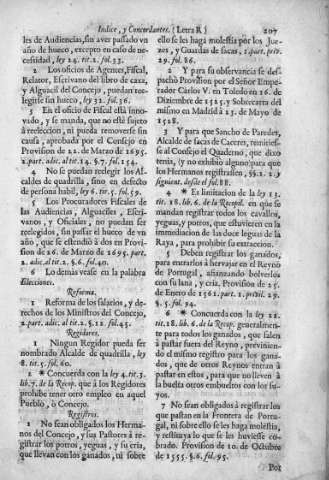 Indice, y Concordantes. (Letra R)
207
les de Audiencias, sin aver passado vn
año de hueco, excepto en caso de ne-
cessidad, ley 24. tit. 2. fol. 33.
2 Los oficios de Agentes, Fiscal,
Relator, Escrivano del libro de caxa,
y Alguacil del Concejo, puedan ree-
legirse sin hueco, ley 32. fol. 36.
3 En el oficio de Fiscal està inno-
vado, y se manda, que no estè sujeto
à reeleccion, ni pueda removerse sin
causa, aprobada por el Consejo en
Provision de 22. de Marzo de 1695.
2. part. adic. al tit. 24. §. 7. fol. 154.
4 No se puedan reelegir los Al-
caldes de quadrilla, sino en defecto
de persona habil, ley 6. tit. 5. fol. 59.
5 Los Procuradores Fiscales de
las Audiencias, Alguaciles, Escri-
vanos, y Oficiales, no puedan ser
reelegidos, sin passar el hueco de vn
año, que se estendiò à dos en Provi-
sion de 26. de Marzo de 1695. part.
2. adic. al tit. 2. §. 6. fol. 40.
6 Lo demàs vease en la palabra
Elecciones.
Reforma.
1 Reforma de los salarios, y de-
rechos de los Ministros del Concejo,
2. part. adic. al tit. 2. §. 12. fol. 43.
Regidores.
1 Ningun Regidor pueda ser
nombrado Alcalde de quadrilla, ley
8. tit. 5. fol. 60.
2 * Concuerda con la ley 4. tit. 3.
lib. 7. de la Recop. que à los Regidores
prohibe tener otro empleo en aquel
Pueblo, ò Concejo.
Registros.
1 No sean obligados los Herma-
nos del Concejo, y sus Pastores à re-
gistrar los potros, yeguas, y su cria,
que llevan con los ganados, ni sobre
ello se les haga molestia por los Jue-
zes, y Guardas de sacas, 1. part. priv.
29. fol. 86.
2 Y para su observancia se des-
pachò Provission por el Señor Empe-
rador Carlos V. en Toledo en 16. de
Diziembre de 1525. y Sobrecarta del
mismo en Madrid à 23. de Mayo de
1528.
3 Y para que Sancho de Paredes,
Alcalde de sacas de Caceres, remities-
se al Consejo el Quaderno, que dixo
tenia, (y no exhibiò alguno) para que
los Hermanos registrassen, §§. 2. y
siguient. desde el fol. 88.
4 * Es limitacion de la ley 13.
tit. 18. lib. 6. de la Recopil. en que se
mandan registrar todos los cavallos,
yeguas, y potros, que estuvieren en la
immediacion de las doce leguas de la
Raya, para prohibir su extraccion.
5 Deben registrar los ganados,
para meterlos à hervajar en el Reyno
de Portugal, afianzando bolverlos
con su lana, y cria. Provision de 25.
de Enero de 1561. part. 1. privil. 29.
§. 5. fol. 94.
6 * Concuerda con la ley 22.
tit. 18. lib. 6. de la Recop. generalmen-
te para todos los ganados, que salen
à pastar fuera del Reyno, previnien-
do el mismo registro para los gana-
dos, que de otros Reynos entran à
pastar en estos, para que no lleven à
la buelta otros embueltos con los su-
yos.
7 No sean obligados à registrar los
que pastan en la Frontera de Portu-
gal, ni sobre ello se les haga molestia,
y restituya lo que se les huviesse co-
brado. Provision de 10. de Octubre
de 1555. §. 6. fol. 95.
Por